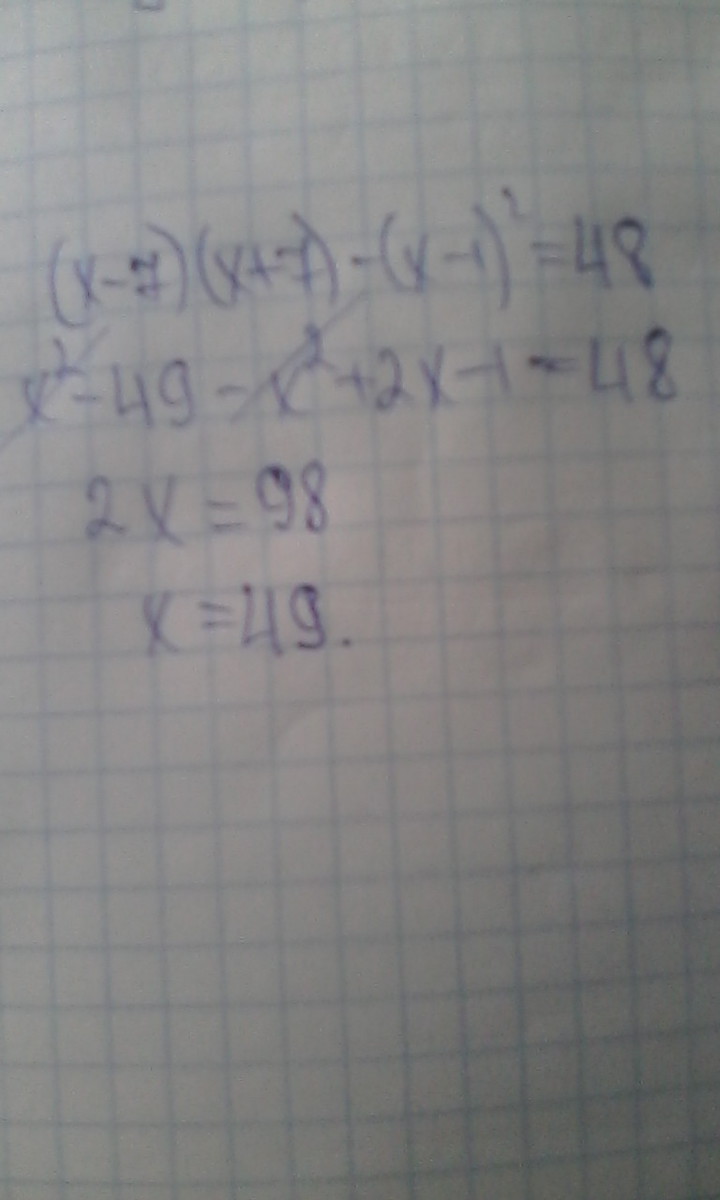 (x-7)(x+7)-(x-1)²=48
x²-49-x²+2x-1=48
2x=98
x=49.